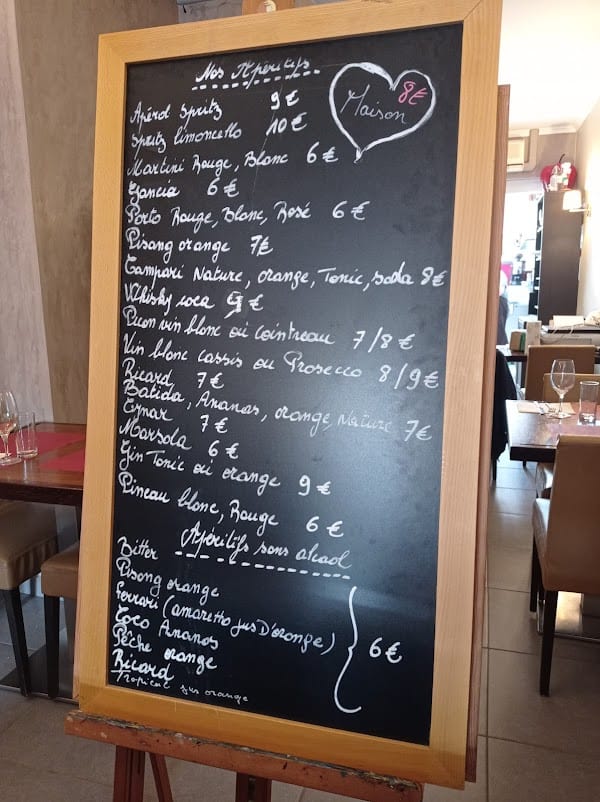 Nos Apéritifs
Maison 8€
Apérol Spritz 9€
Spritz limoncello 10€
Martini Rouge, Blanc 6€
Gancia 6€
Porto Rouge, Blanc, Rosé 6€
Pisang orange 7€
Campari Nature, orange, Tonic, soda 8€
Whisky coca 9€
Picon vin blanc ou cointreau 7/8€
Vin blanc cassis ou Prosecco 8/9€
Ricard 7€
Batida, Ananas, orange, Nature 7€
Cynar 7€
Marsala 6€
Gin Tonic ou orange 9€
Pineau blanc, Rouge 6€
Apéritifs sans alcool
Bitter
Pisang orange
Ferrari (amaretto jus D'orange)
Coco Ananas
Pêche orange
Ricard
Tropical jus orange
6€